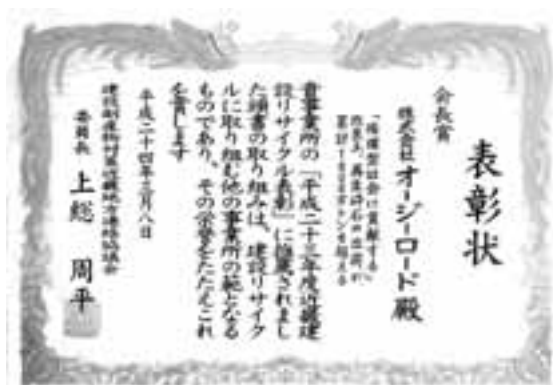 表彰状
会長賞
株式会社 オージーロード殿
「循環型社会に貢献する」
貴事業所の「平成二十三年度近畿建
設リサイクル表彰」に推薦されまし
た顕著の取り組みは、建設リサイク
ルに取り組む他の事業所の範となる
ものであり、その栄誉をたたえこれ
を賞します
平成二十四年三月八日
建設副産物対策近畿地方連絡協議会
委員長 上総 周平